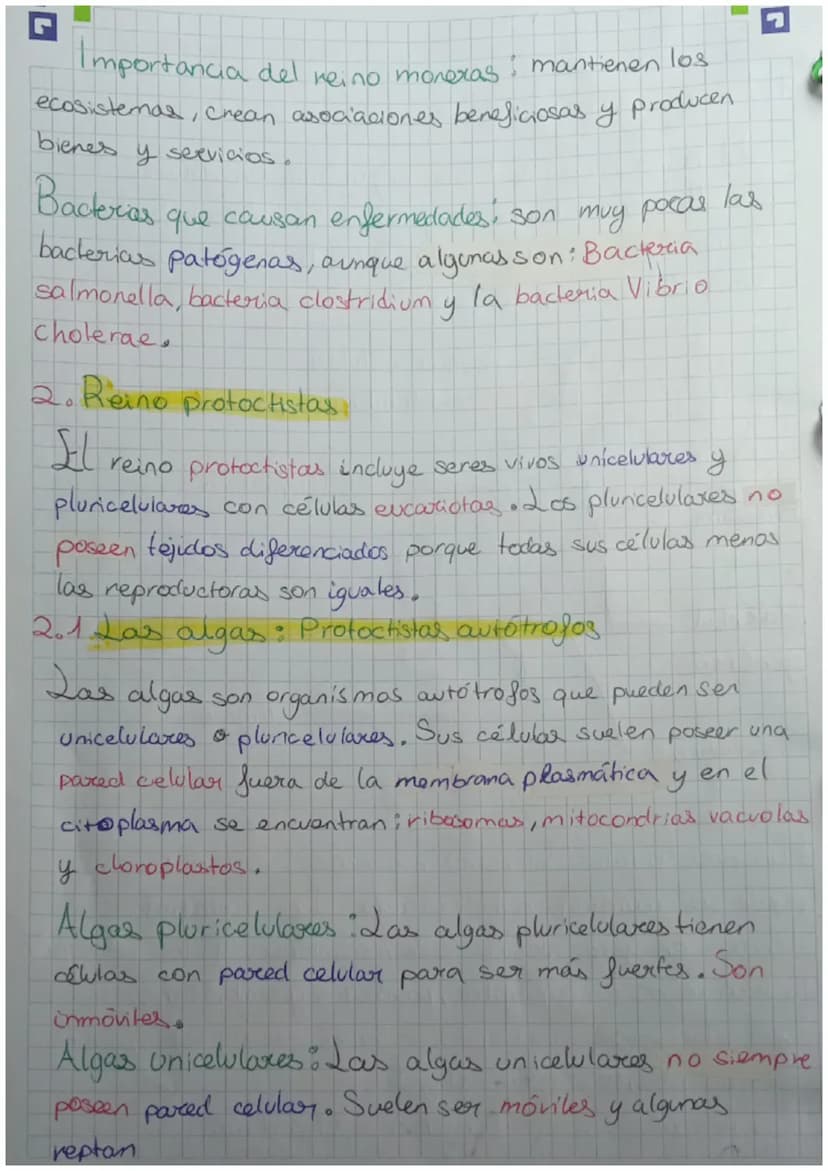 Importancia del reino moneras: mantienen los
ecosistemas, crean asociaciones beneficiosas y producen
bienes y servicios.
Bacterias que causan enfermedades: son muy pocas las
bacterias patógenas, aunque algunas son: Bacteria
salmonella, bacteria clostridium y la bacteria Vibrio
cholerae.
2. Reino protoctistas
El reino protoctistas incluye seres vivos unicelulares y
pluricelulares con células eucariotas. Los pluricelulares no
poseen tejidos diferenciados porque todas sus células menos
las reproductoras son iguales.
2.1 Las algas: Protoctistas autótrofos
Las algas son organismos autótrofos que pueden ser
unicelulares o pluricelulares. Sus células suelen poseer una
pared celular fuera de la membrana plasmática y en el
citoplasma se encuentran: ribosomas, mitocondrias vacuolas
y cloroplastos.
Algas pluricelulares: Las algas pluricelulares tienen
células con pared celular para ser más fuertes. Son
inmóviles.
Algas unicelulares: Las algas unicelulares no siempre
poseen pared celular. Suelen ser móviles y algunas
reptan